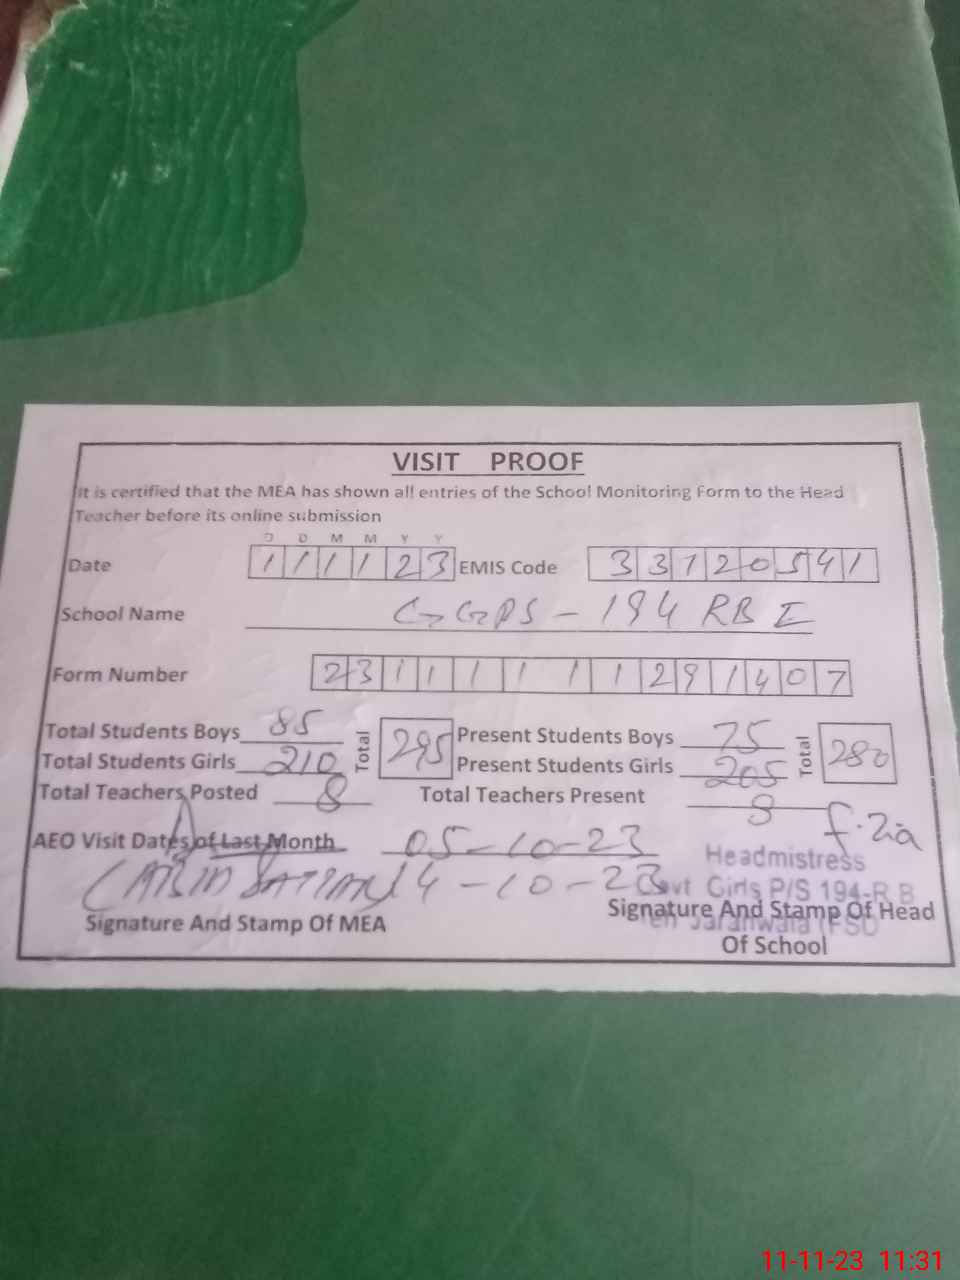 VISIT PROOF
It is certified that the MEA has shown all entries of the School Monitoring Form to the Head
Teacher before its online submission
D D M M Y Y
Date 111123 EMIS Code 33120541
School Name GGPS - 194 RB I
Form Number 23111111291407
Total Students Boys 85 Total 295 Present Students Boys 75 Total 280
Total Students Girls 210 Present Students Girls 205
Total Teachers Posted 8 Total Teachers Present 8
f.Zia
AEO Visit Dates of Last Month 05-10-23
14-10-23
Headmistress
Govt Girls P/S 194-R.B
Teh Jaranwala (FSD
Signature And Stamp Of MEA
Signature And Stamp Of Head
Of School
11-11-23 11:31